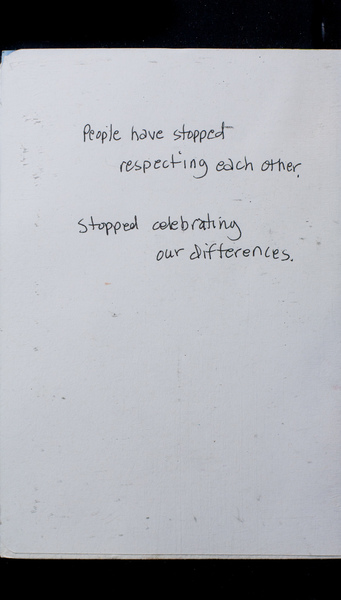 People have stopped
respecting each other.
Stopped celebrating
our differences.